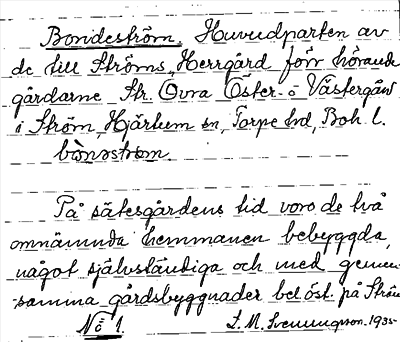 Bondeström. Huvudparten av
de till Ströms Herrgård förr hörande
gårdarne Str. Övra Öster- o Västergård
i Ström, Hjärtum sn, Torpe hd, Boh. l.
bònnstrœm.
På sätesgårdens tid voro de två
omnämnda hemmanen bebyggda,
något självständiga och med gemen-
samma gårdsbyggnader bel öst. på Ström
No 1. L. M. Svenungsson. 1935